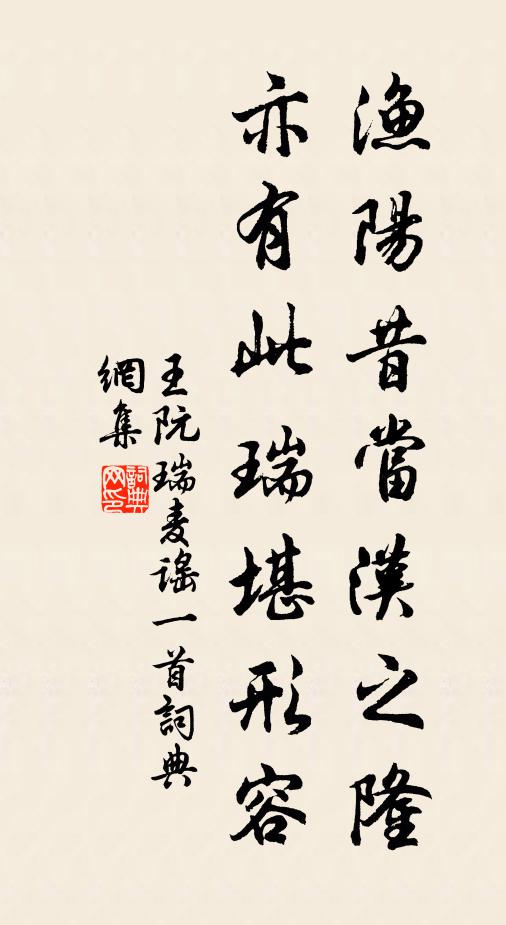 漁陽昔當漢之隆
亦有此瑞堪形容
王阮瑞麦謠一首詞典
網集
詞典網印